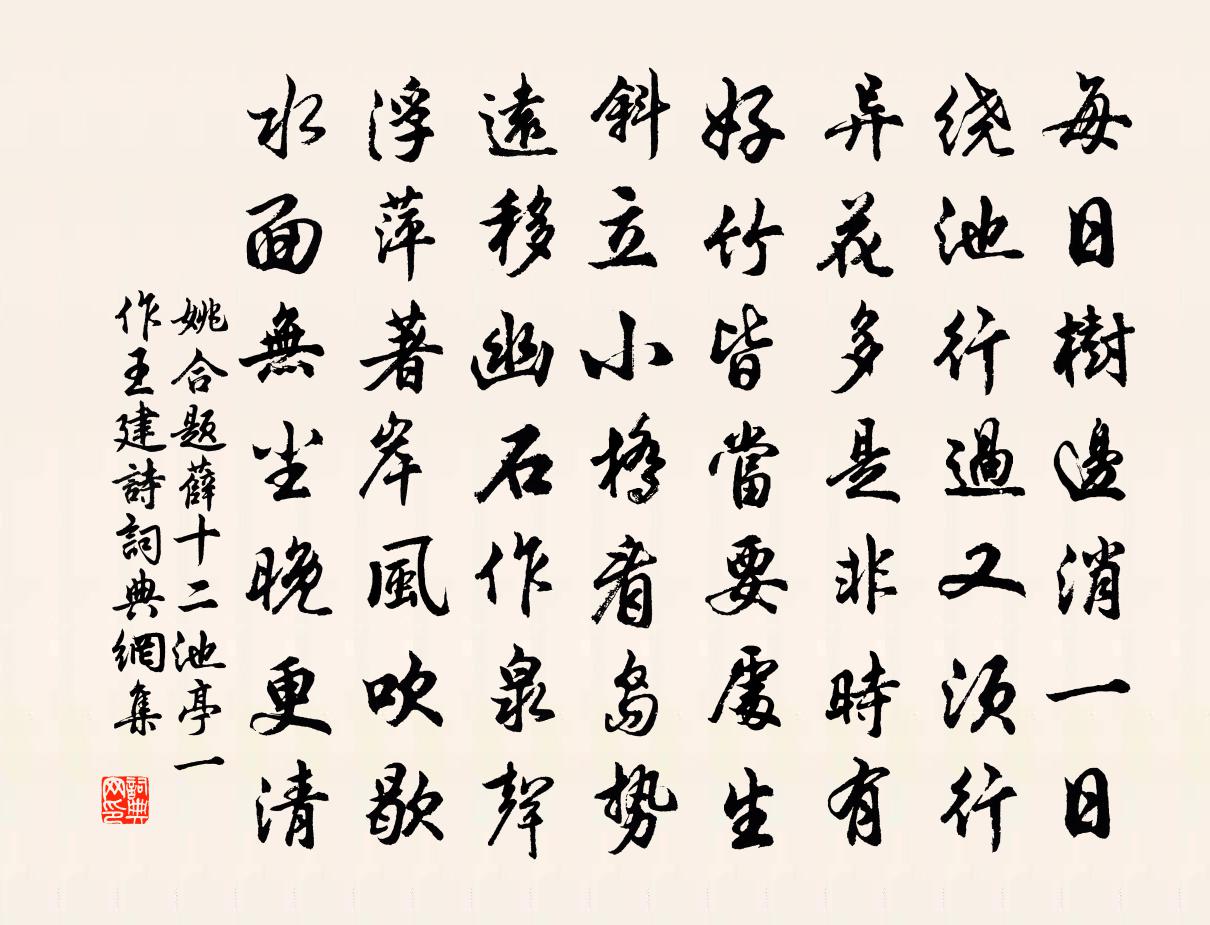 每日樹邊消一日
绕池行過又須行
异花多是非時有
好竹皆當要處生
斜立小橋看島勢
遠移幽石作泉聲
浮萍著岸風吹歇
水面無尘晚更清
姚合题薛十二池亭一
作王建詩詞典網集
詞典
网印